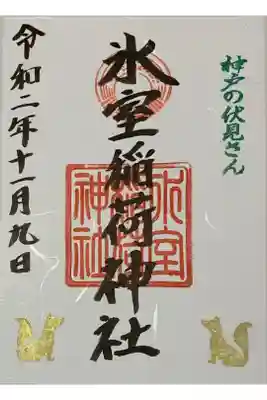 神戸の伏見さん
氷室稲荷神社
氷室
神社
令和二年十一月九日